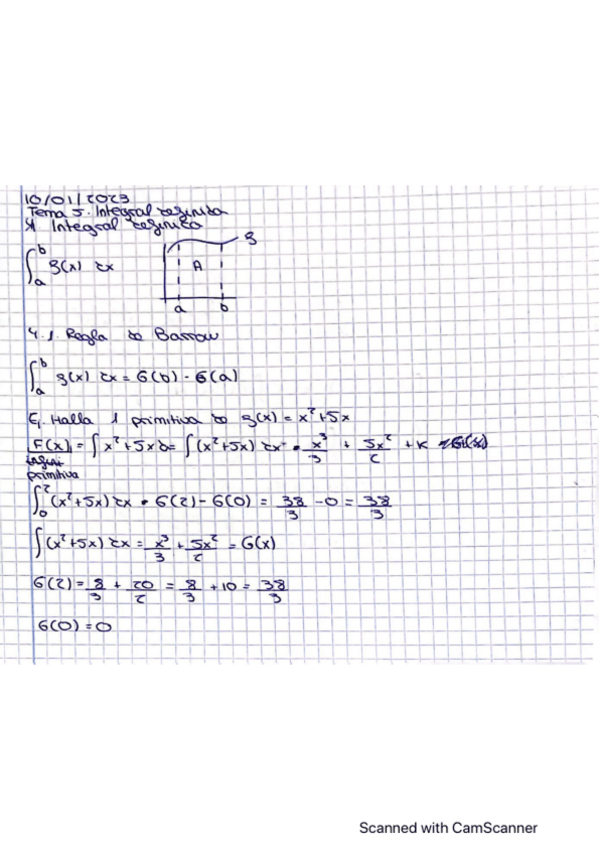 10/01/2023
Tema 5. Integral definida
Integral definida
∫ₐᵇ f(x) dx
f
A
a b
4.1. Regla de Barrow
∫ₐᵇ f(x) dx = G(b) - G(a)
Ej. Halla 1 primitiva de f(x) = x² + 5x
F(x) = ∫ x² + 5x dx = ∫ (x² + 5x) dx = x³/3 + 5x²/2 + K = G(x)
primitiva
∫₀² (x² + 5x) dx = G(2) - G(0) = 38/3 - 0 = 38/3
∫ (x² + 5x) dx = x³/3 + 5x²/2 = G(x)
G(2) = 8/3 + 20/2 = 8/3 + 10 = 38/3
G(0) = 0
Scanned with CamScanner